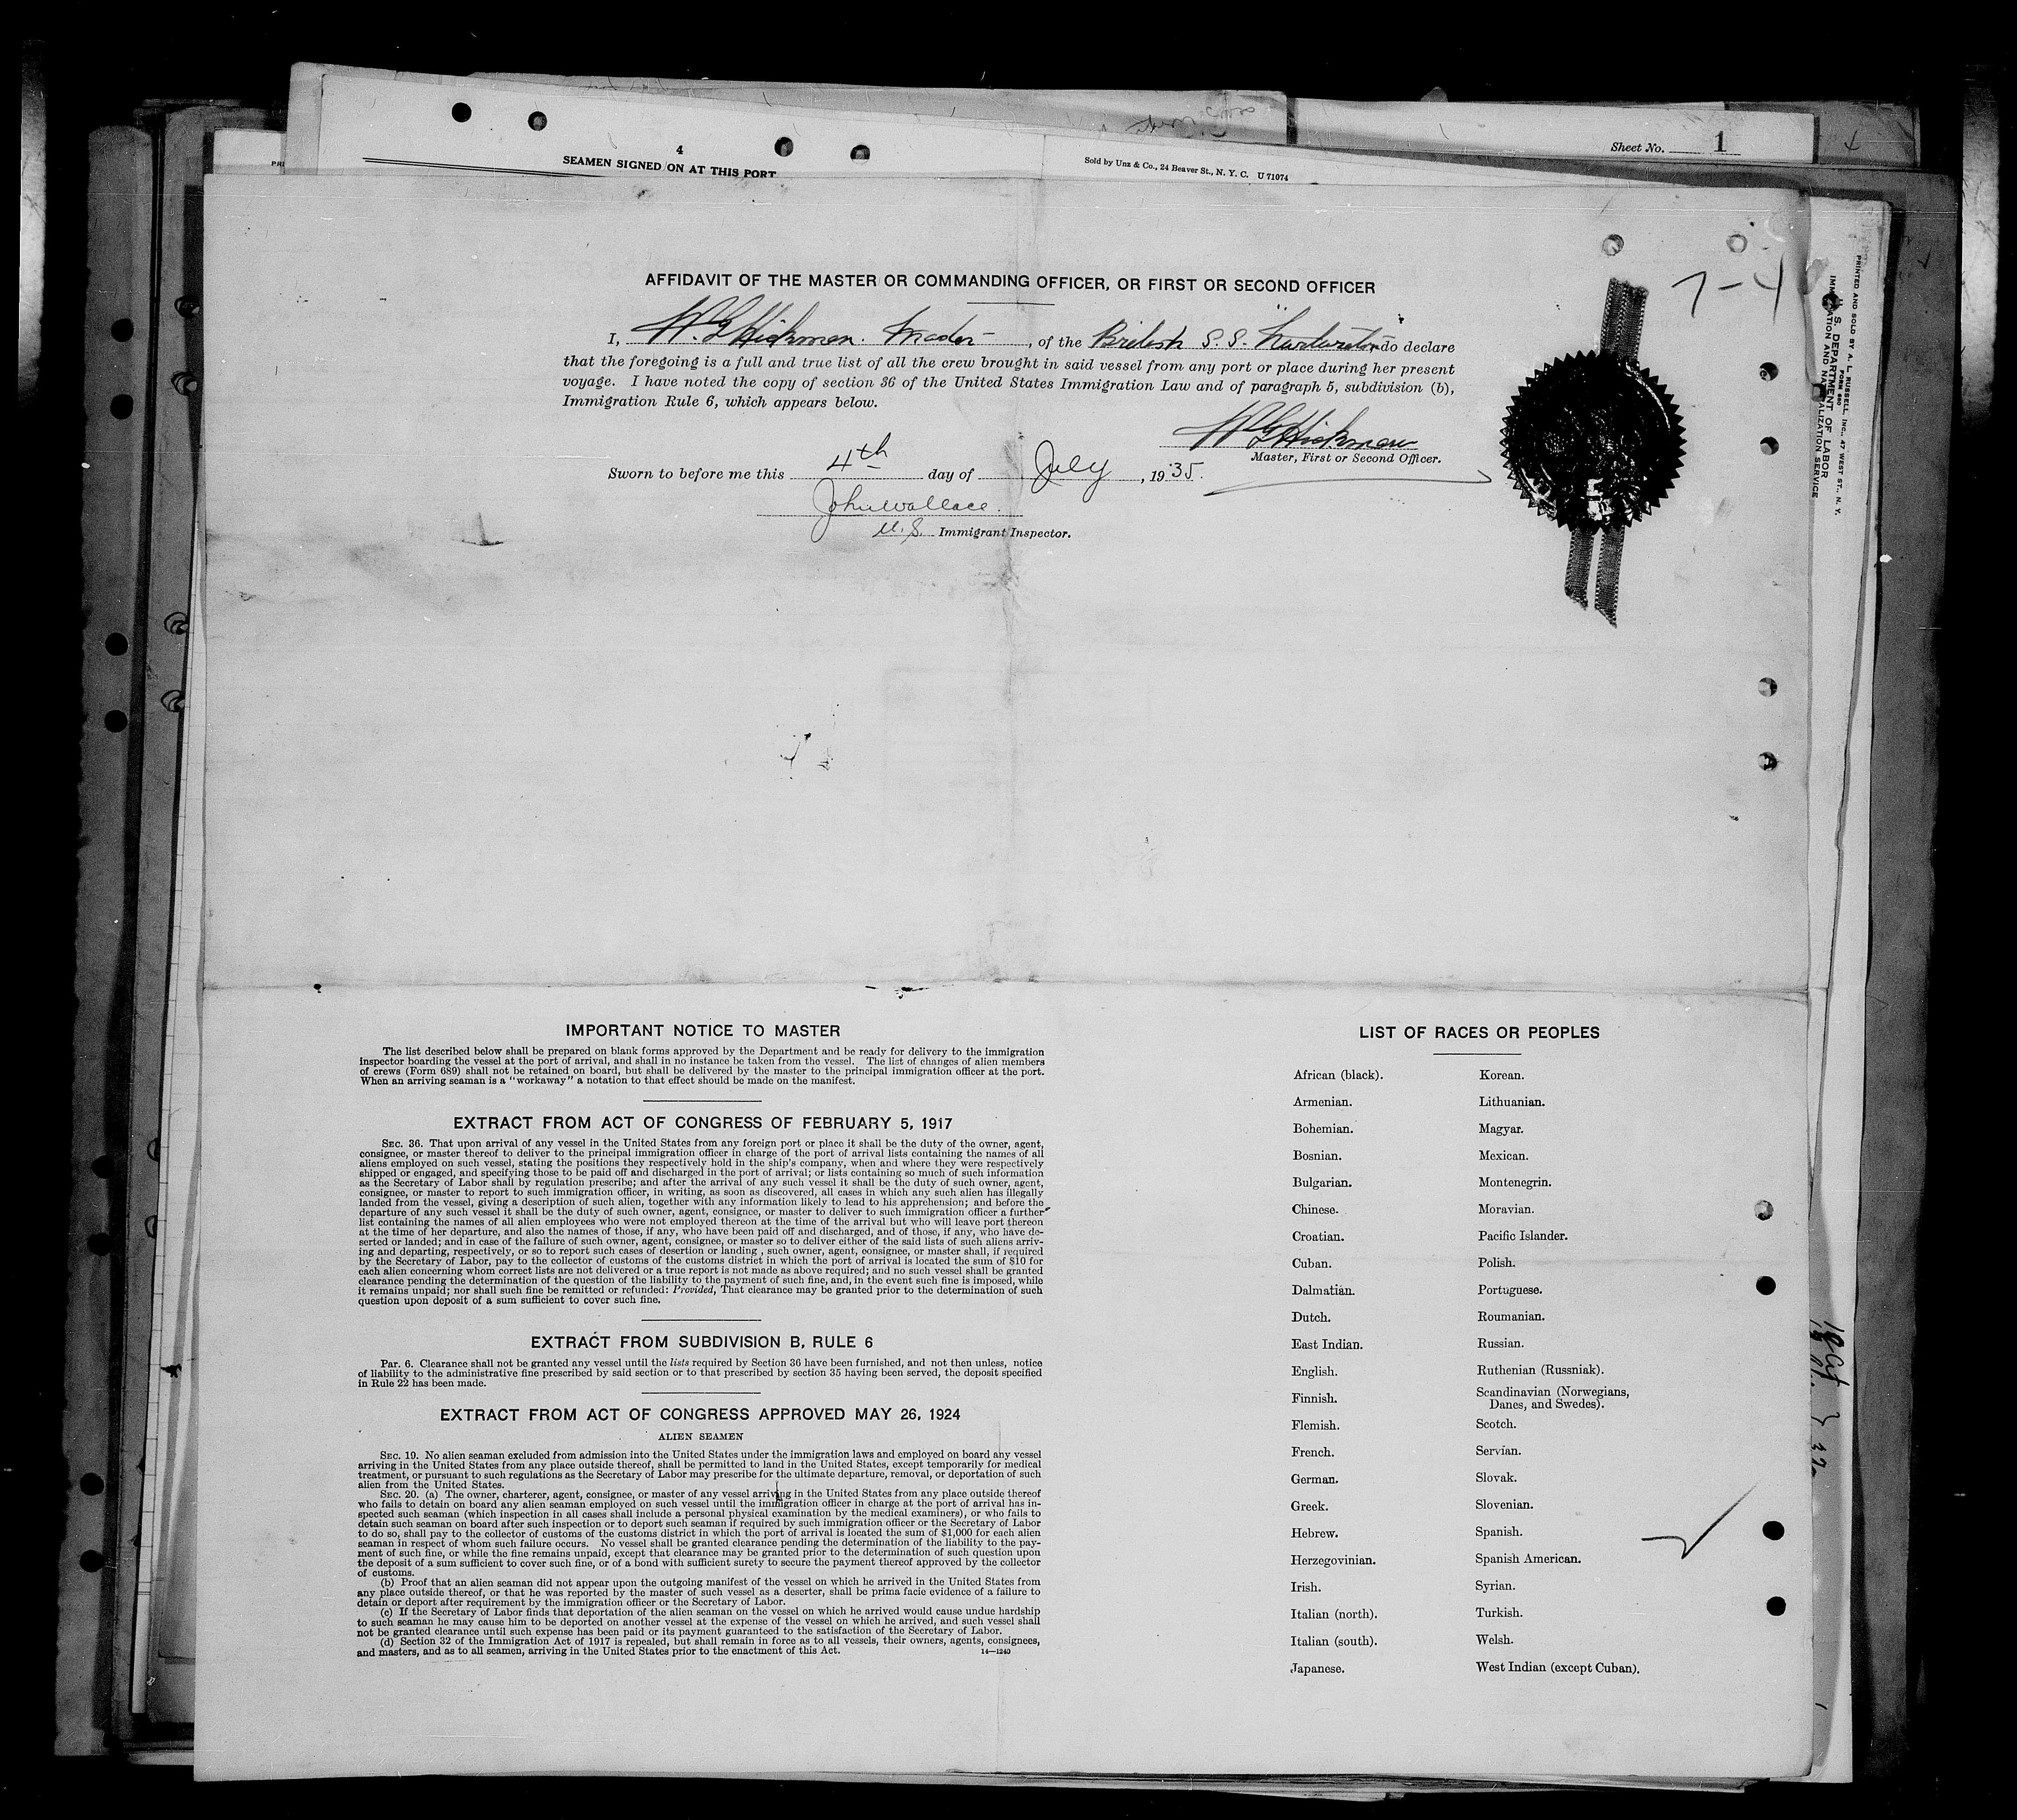 Sheet No. 1
4
SEAMEN SIGNED ON AT THIS PORT
Sold by Unz & Co., 24 Beaver St., N. Y. C. U 71074
PRINTED AND SOLD BY A. L. RUSSELL, INC., 47 WEST ST., N. Y.
FORM 680
U. S. DEPARTMENT OF LABOR
IMMIGRATION AND NATURALIZATION SERVICE
7-4
AFFIDAVIT OF THE MASTER OR COMMANDING OFFICER, OR FIRST OR SECOND OFFICER
I, W. G. Hickman. Master, of the British S. S. do declare
that the foregoing is a full and true list of all the crew brought in said vessel from any port or place during her present
voyage. I have noted the copy of section 36 of the United States Immigration Law and of paragraph 5, subdivision (b),
Immigration Rule 6, which appears below.
W G Hickman
Master, First or Second Officer.
Sworn to before me this 4th day of July, 1935.
John Wallace.
U.S. Immigrant Inspector.
IMPORTANT NOTICE TO MASTER
The list described below shall be prepared on blank forms approved by the Department and be ready for delivery to the immigration
inspector boarding the vessel at the port of arrival, and shall in no instance be taken from the vessel. The list of changes of alien members
of crews (Form 689) shall not be retained on board, but shall be delivered by the master to the principal immigration officer at the port.
When an arriving seaman is a "workaway" a notation to that effect should be made on the manifest.
EXTRACT FROM ACT OF CONGRESS OF FEBRUARY 5, 1917
SEC. 36. That upon arrival of any vessel in the United States from any foreign port or place it shall be the duty of the owner, agent,
consignee, or master thereof to deliver to the principal immigration officer in charge of the port of arrival lists containing the names of all
aliens employed on such vessel, stating the positions they respectively hold in the ship's company, when and where they were respectively
shipped or engaged, and specifying those to be paid off and discharged in the port of arrival; or lists containing so much of such information
as the Secretary of Labor shall by regulation prescribe; and after the arrival of any such vessel it shall be the duty of such owner, agent,
consignee, or master to report to such immigration officer, in writing, as soon as discovered, all cases in which any such alien has illegally
landed from the vessel, giving a description of such alien, together with any information likely to lead to his apprehension; and before the
departure of any such vessel it shall be the duty of such owner, agent, consignee, or master to deliver to such immigration officer a further
list containing the names of all alien employees who were not employed thereon at the time of the arrival but who will leave port thereon
at the time of her departure, and also the names of those, if any, who have been paid off and discharged, and of those, if any, who have de-
serted or landed; and in case of the failure of such owner, agent, consignee, or master so to deliver either of the said lists of such aliens arriv-
ing and departing, respectively, or so to report such cases of desertion or landing , such owner, agent, consignee, or master shall, if required
by the Secretary of Labor, pay to the collector of customs of the customs district in which the port of arrival is located the sum of $10 for
each alien concerning whom correct lists are not delivered or a true report is not made as above required; and no such vessel shall be granted
clearance pending the determination of the question of the liability to the payment of such fine, and, in the event such fine is imposed, while
it remains unpaid; nor shall such fine be remitted or refunded: Provided, That clearance may be granted prior to the determination of such
question upon deposit of a sum sufficient to cover such fine.
EXTRACT FROM SUBDIVISION B, RULE 6
Par. 6. Clearance shall not be granted any vessel until the lists required by Section 36 have been furnished, and not then unless, notice
of liability to the administrative fine prescribed by said section or to that prescribed by section 35 having been served, the deposit specified
in Rule 22 has been made.
EXTRACT FROM ACT OF CONGRESS APPROVED MAY 26, 1924
ALIEN SEAMEN
SEC. 19. No alien seaman excluded from admission into the United States under the immigration laws and employed on board any vessel
arriving in the United States from any place outside thereof, shall be permitted to land in the United States, except temporarily for medical
treatment, or pursuant to such regulations as the Secretary of Labor may prescribe for the ultimate departure, removal, or deportation of such
alien from the United States.
SEC. 20. (a) The owner, charterer, agent, consignee, or master of any vessel arriving in the United States from any place outside thereof
who fails to detain on board any alien seaman employed on such vessel until the immigration officer in charge at the port of arrival has in-
spected such seaman (which inspection in all cases shall include a personal physical examination by the medical examiners), or who fails to
detain such seaman on board after such inspection or to deport such seaman if required by such immigration officer or the Secretary of Labor
to do so, shall pay to the collector of customs of the customs district in which the port of arrival is located the sum of $1,000 for each alien
seaman in respect of whom such failure occurs. No vessel shall be granted clearance pending the determination of the liability to the pay-
ment of such fine, or while the fine remains unpaid, except that clearance may be granted prior to the determination of such question upon
the deposit of a sum sufficient to cover such fine, or of a bond with sufficient surety to secure the payment thereof approved by the collector
of customs.
(b) Proof that an alien seaman did not appear upon the outgoing manifest of the vessel on which he arrived in the United States from
any place outside thereof, or that he was reported by the master of such vessel as a deserter, shall be prima facie evidence of a failure to
detain or deport after requirement by the immigration officer or the Secretary of Labor.
(c) If the Secretary of Labor finds that deportation of the alien seaman on the vessel on which he arrived would cause undue hardship
to such seaman he may cause him to be deported on another vessel at the expense of the vessel on which he arrived, and such vessel shall
not be granted clearance until such expense has been paid or its payment guaranteed to the satisfaction of the Secretary of Labor.
(d) Section 32 of the Immigration Act of 1917 is repealed, but shall remain in force as to all vessels, their owners, agents, consignees,
and masters, and as to all seamen, arriving in the United States prior to the enactment of this Act.
14—1240
LIST OF RACES OR PEOPLES
African (black).
Armenian.
Bohemian.
Bosnian.
Bulgarian.
Chinese.
Croatian.
Cuban.
Dalmatian.
Dutch.
East Indian.
English.
Finnish.
Flemish.
French.
German.
Greek.
Hebrew.
Herzegovinian.
Irish.
Italian (north).
Italian (south).
Japanese.
Korean.
Lithuanian.
Magyar.
Mexican.
Montenegrin.
Moravian.
Pacific Islander.
Polish.
Portuguese.
Roumanian.
Russian.
Ruthenian (Russniak).
Scandinavian (Norwegians,
Danes, and Swedes).
Scotch.
Servian.
Slovak.
Slovenian.
Spanish.
Spanish American.
Syrian.
Turkish.
Welsh.
West Indian (except Cuban).